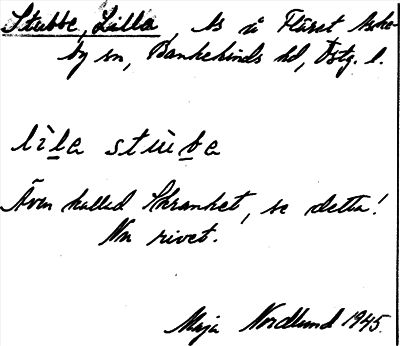 Stubbe, Lilla, ls å Flärst
by sn, Bankekinds hd, Östg. l.
lìla stùba
Även kallad Skranket, se detta!
Nu rivet.
Maja Nordlund 1945.